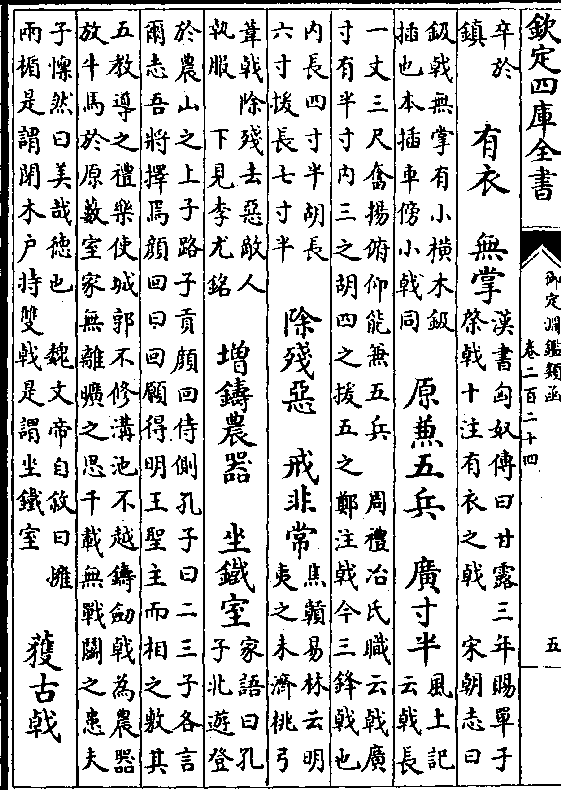 欽定四庫全書
御定淵鑑類函
卷二百二十四
五
卒於
鎮
有衣 無掌
漢書匈奴傳曰甘露三年賜單于
棨戟十注有衣之戟 宋朝志曰
鈒戟無掌有小橫木鈒
插也本插車傍小戟同
原兼五兵 廣寸半
風土記
云戟長
一丈三尺奮揚俯仰能兼五兵 周禮冶氏職云戟廣
寸有半寸内三之胡四之援五之 鄭注戟今三鋒戟也
内長四寸半胡長
六寸援長七寸半
除殘惡 戒非常
焦贛易林云明
夷之未濟桃弓
葦戟除殘去惡敵人
執服 下見李尤銘
増鑄農器 坐鐵室
家語曰孔
子北遊登
於農山之上子路子貢顔回侍側孔子曰二三子各言
爾志吾將擇焉顔回曰回願得明王聖主而相之敷其
五教導之禮樂使城郭不修溝池不越鑄劒戟為農器
放牛馬於原藪室家無離曠之思千載無戰鬬之患夫
子懍然曰美哉徳也 魏文帝自敘曰擁
兩楯是謂閉木户持雙戟是謂坐鐵室
獲古戟